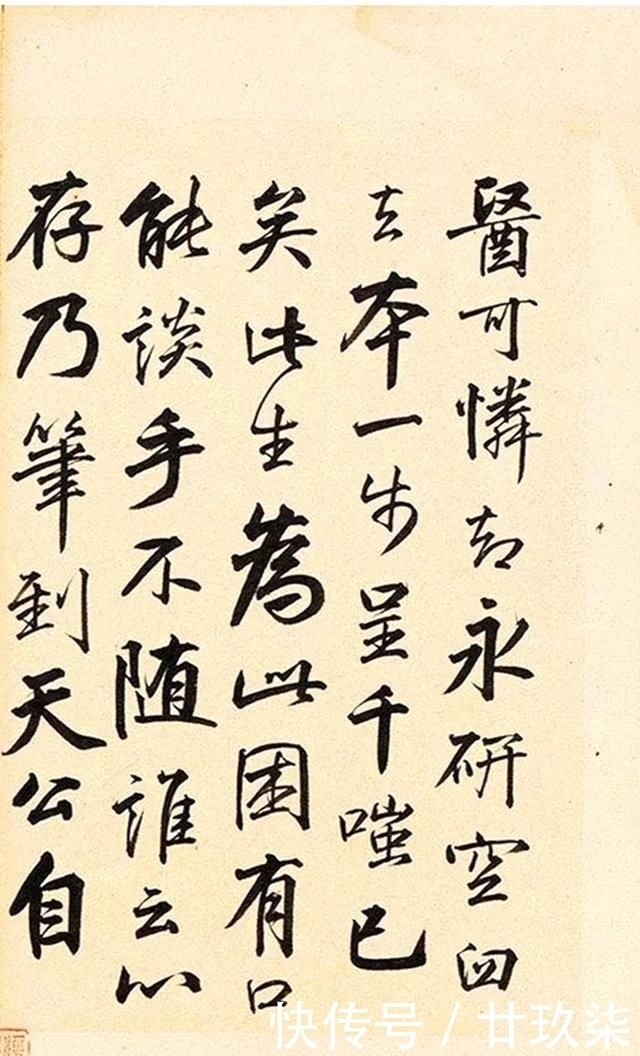 醫可憐智永研空臼
去本一步呈千嗤已
矣此生為此困有口
能談手不随誰云心
存乃筆到天公自
快传号 / 廿玖柒